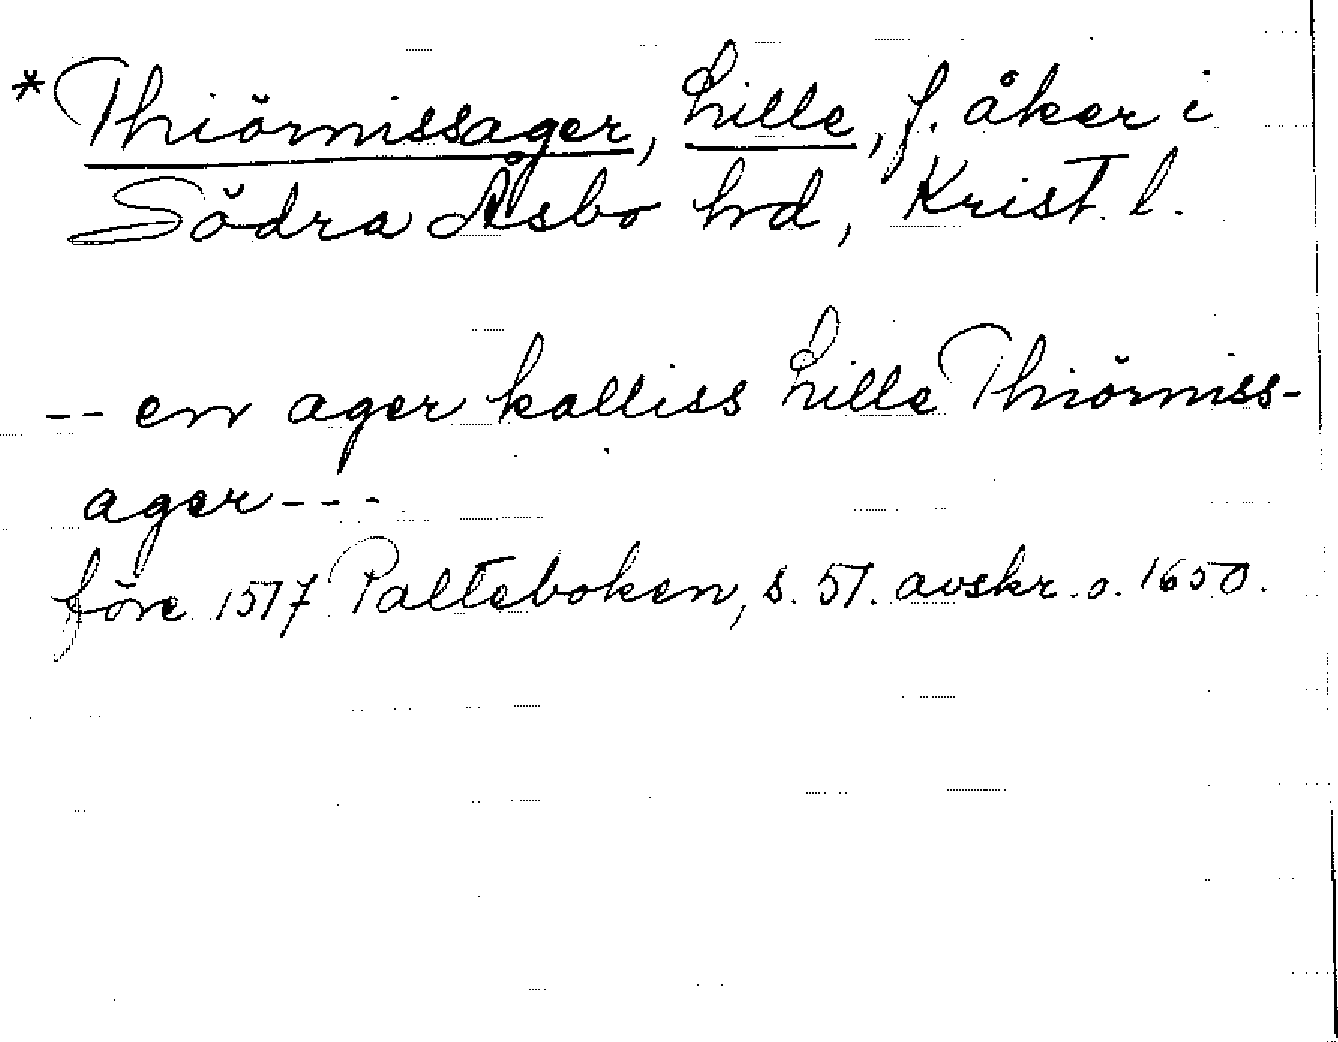 * Thiörnissager, Lille, f. åker i
Södra Åsbo hrd, Krist. l.
-- en ager kalliss Lille Thiörniss-
ager ---
före 1517 Palteboken, s. 51. avskr. o. 1650.